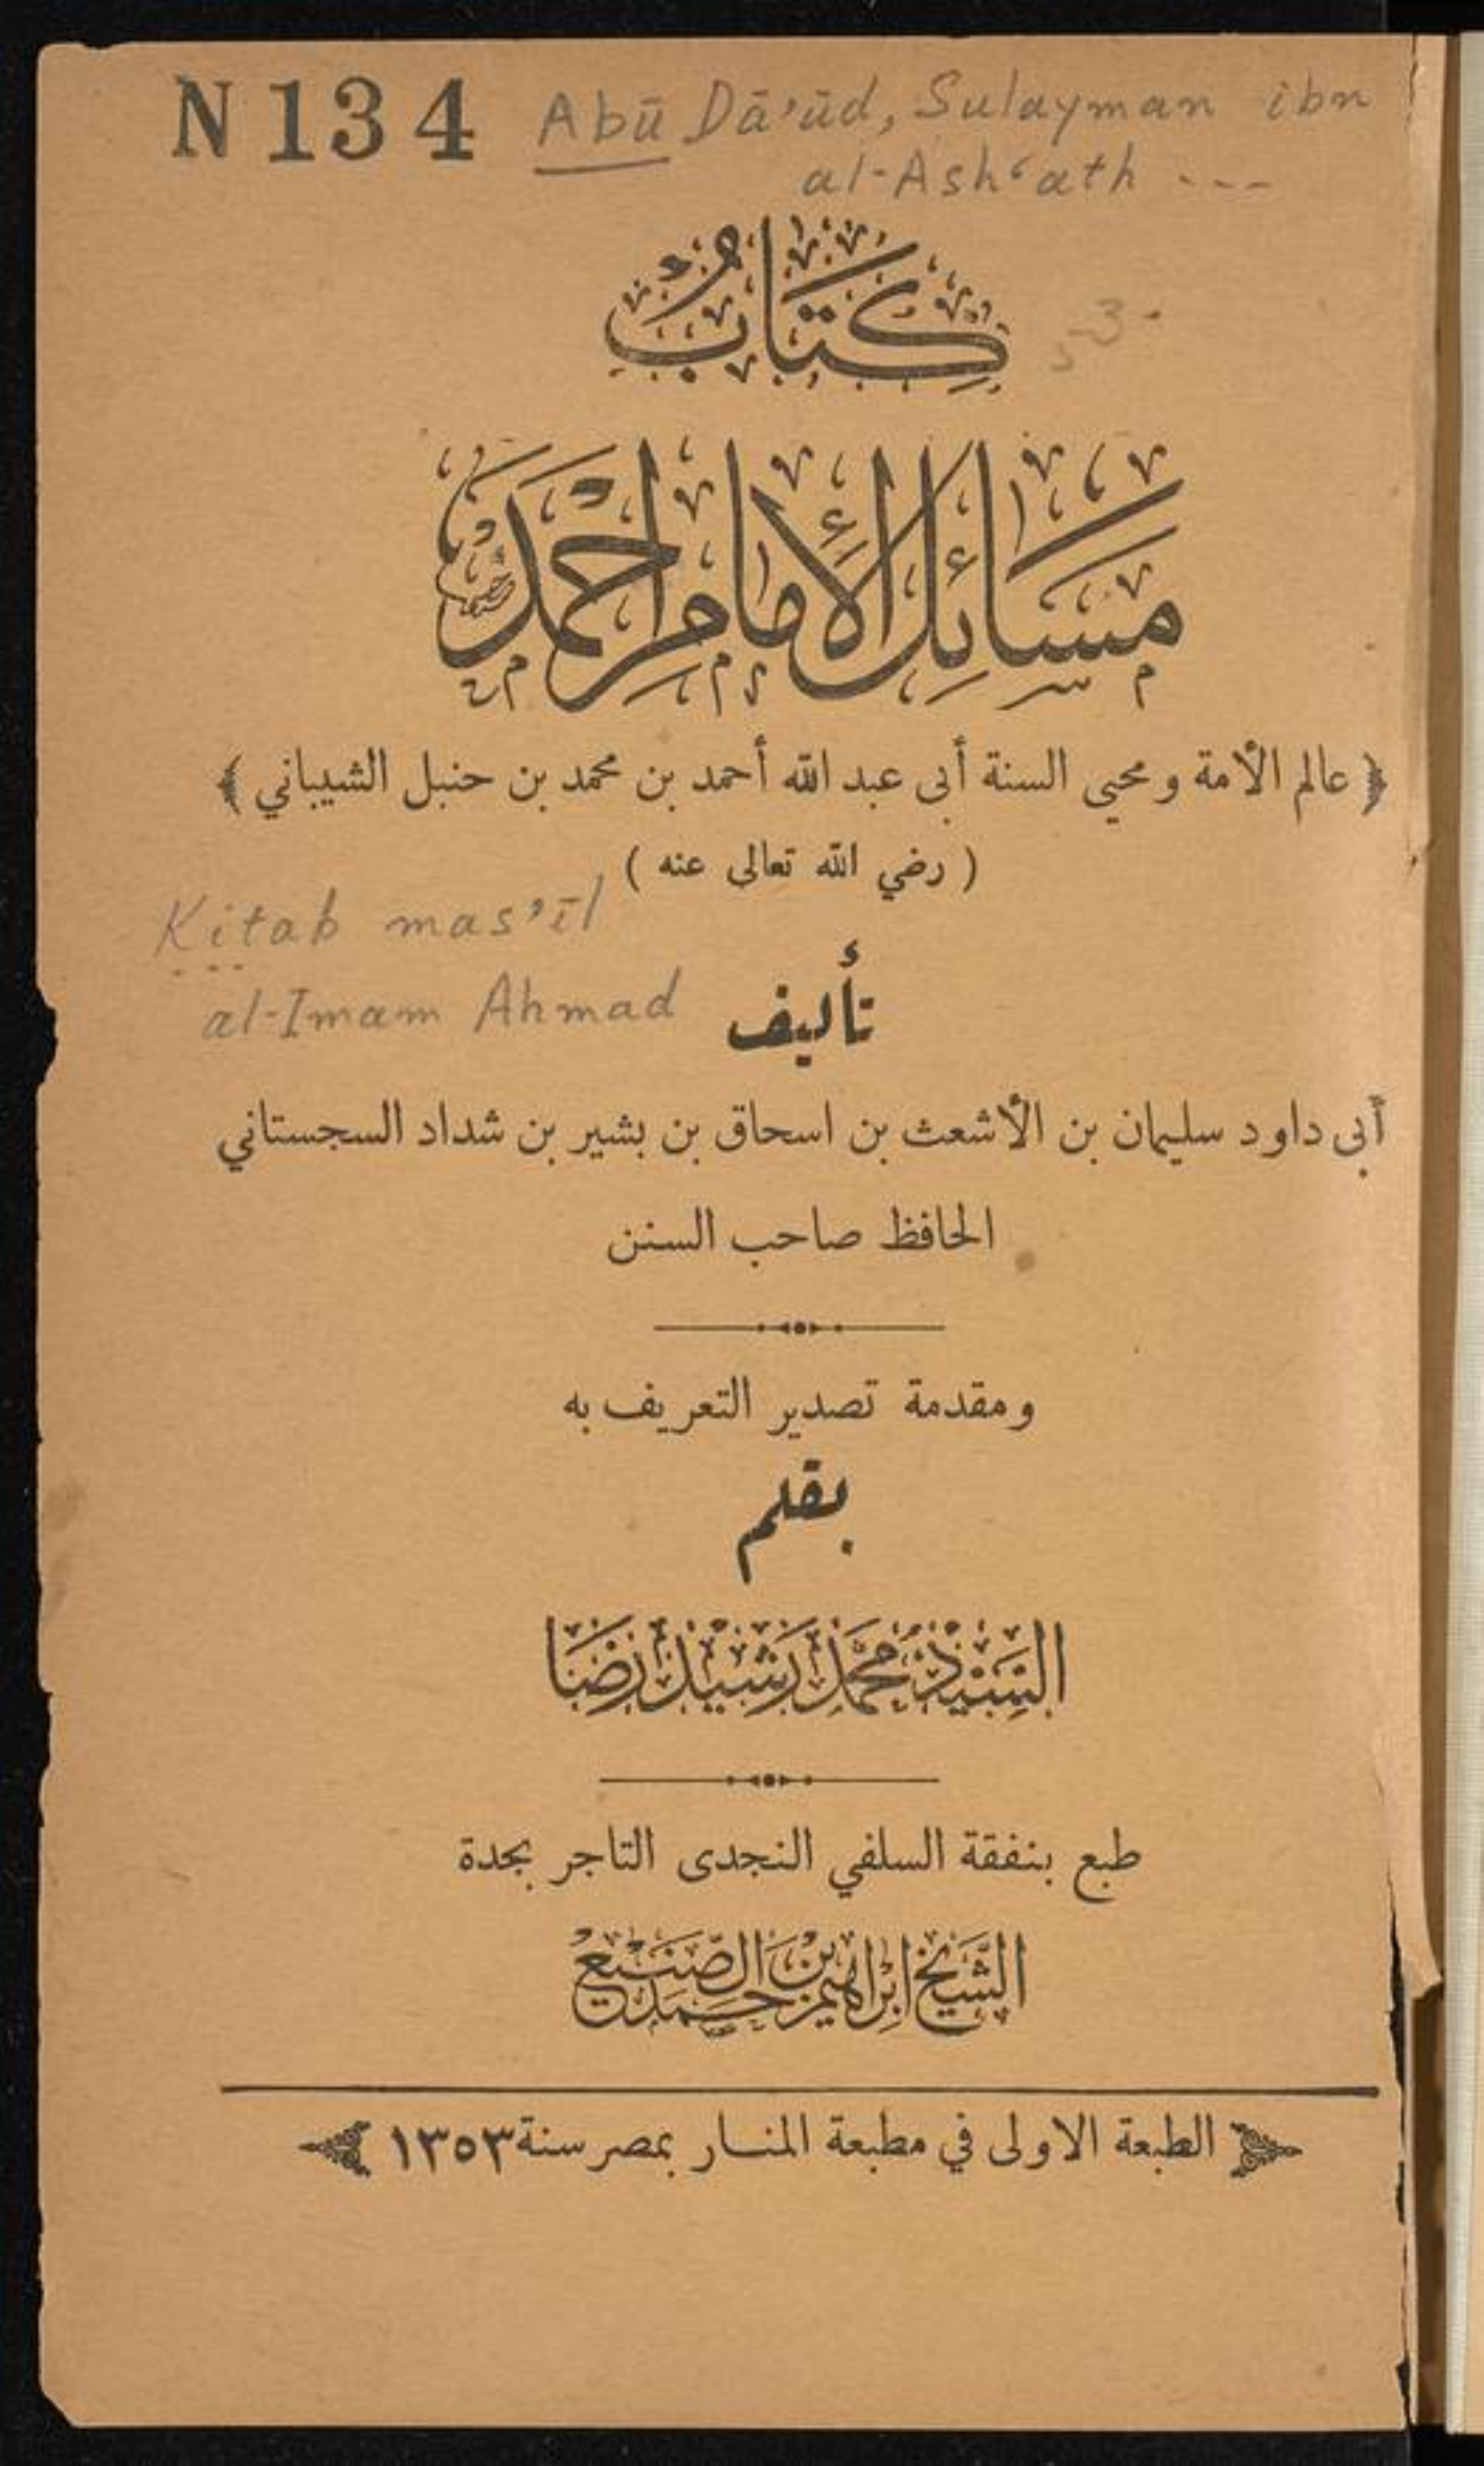 N 134 Abū Dā'ūd, Sulayman ibn
al-Ash'ath ---
كِتَابُ
مسَائِل الإمامِ احْمَدَ
﴿ عالم الأمة ومحيي السنة أبى عبد الله أحمد بن محمد بن حنبل الشيباني ﴾
( رضي الله تعالى عنه )
Kitab mas'īl
al-Imam Ahmad
تأليف
أبى داود سليمان بن الأشعث بن اسحاق بن بشير بن شداد السجستاني
الحافظ صاحب السنن
ومقدمة تصدير التعريف به
بقلم
السَّيِّد مُحَمَّد رَشِيد رِضَا
طبع بنفقة السلفي النجدى التاجر بجدة
الشَّيخ ابْرَاهيم بْن حَمَد الصَّنيع
الطبعة الاولى في مطبعة المنار بمصر سنة ١٣٥٣